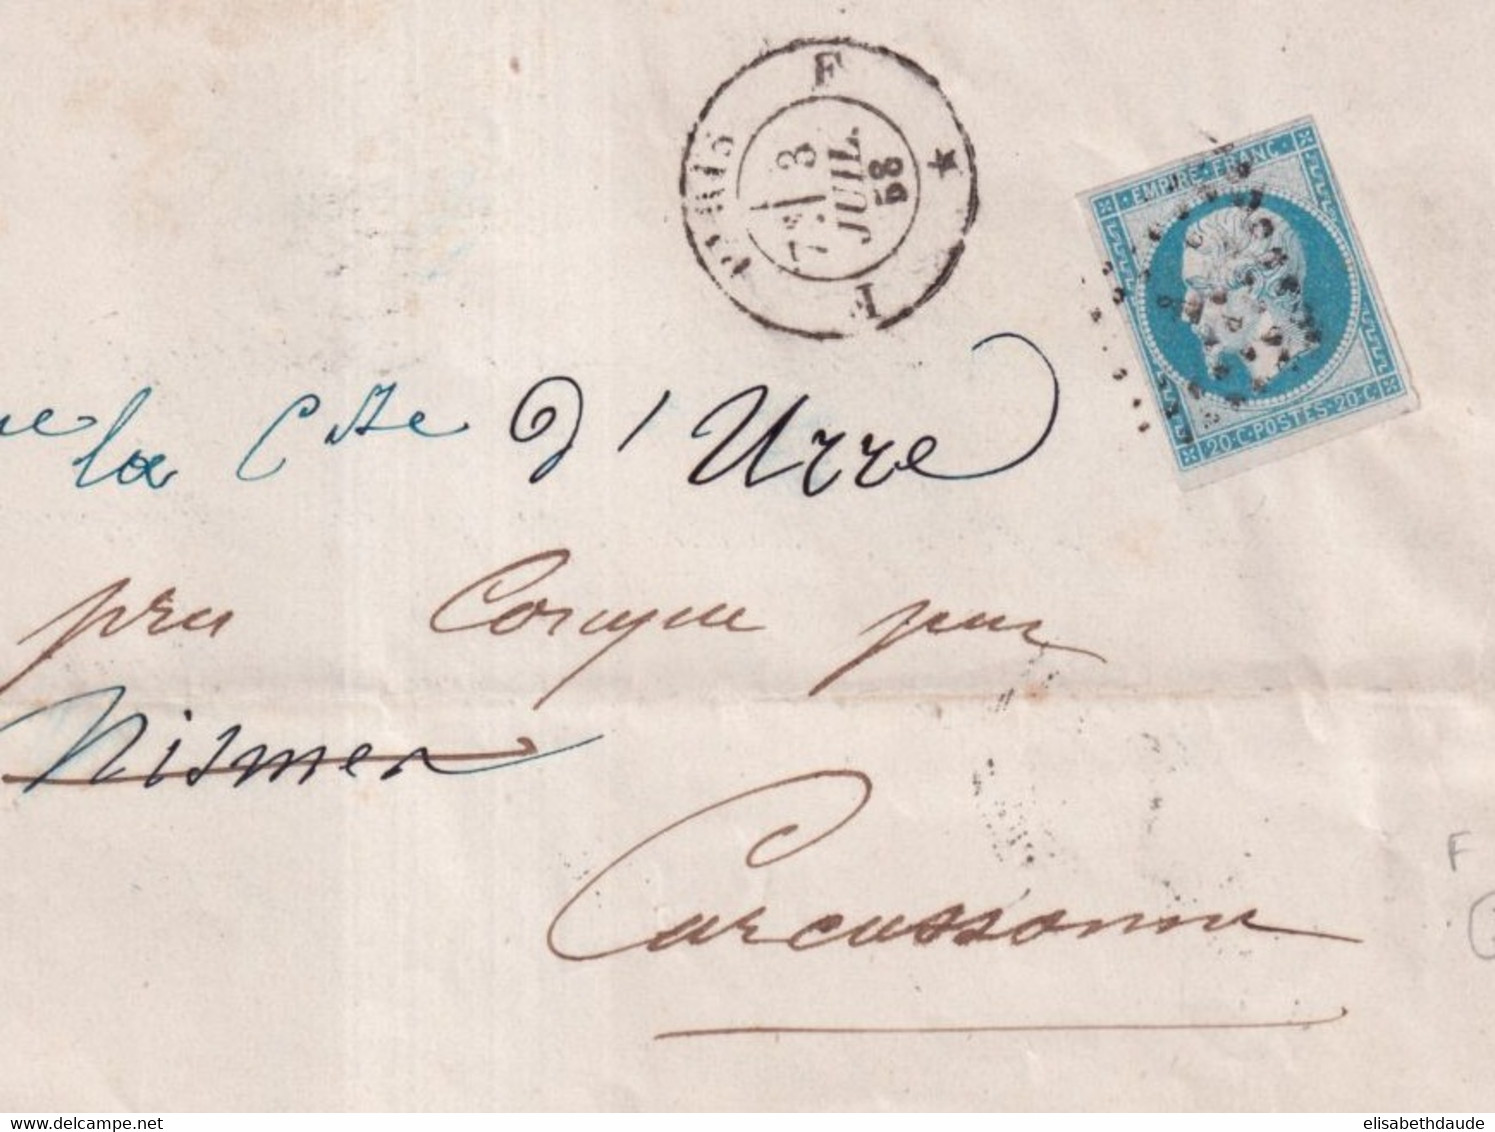 PARIS F
7E 3
JUIL.
58
F
EMPIRE · FRANC ·
20 · C · POSTES · 20 · C ·
la Ctsse d'Urre
près Conques par
Nismes
Carcassonne
F
www.delcampe.net
elisabethdaude